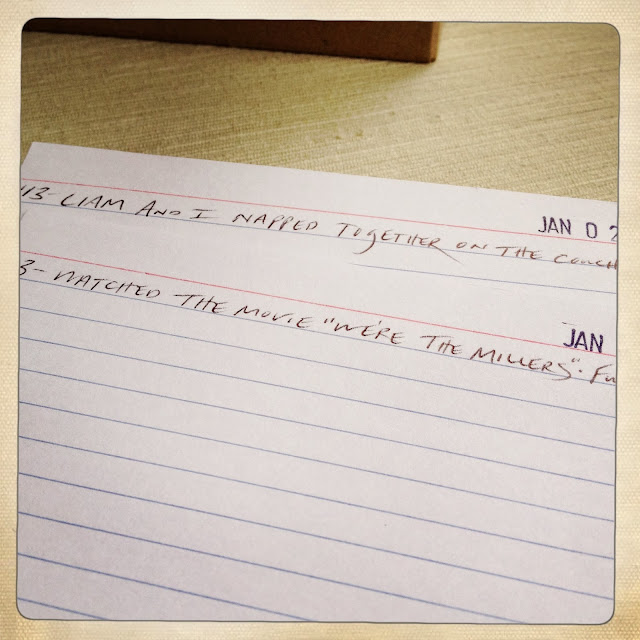 JAN 0 2
13 - LIAM AND I NAPPED TOGETHER ON THE COUCH
JAN
3 - WATCHED THE MOVIE "WE'RE THE MILLERS".